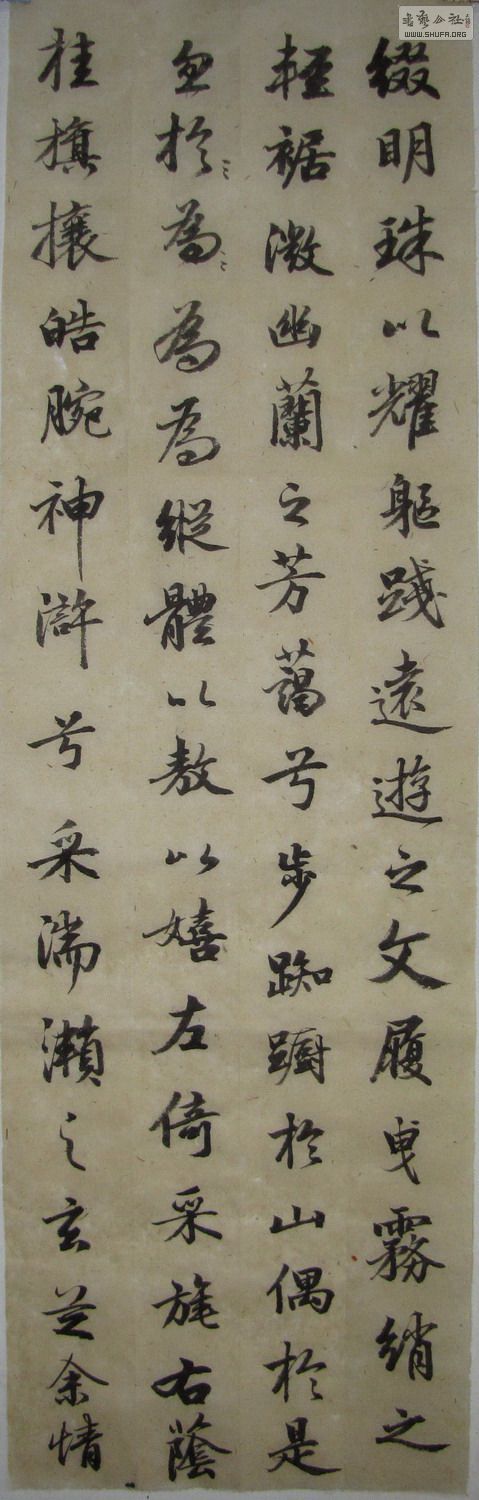 綴明珠以耀軀踐遠遊之文履曳霧綃之
輕裾微幽蘭之芳藹兮步踟躕於山偶於是
忽於為為為縱體以敖以嬉左倚采旄右蔭
桂旗攘皓腕神滸兮采湍瀨之玄芝余情
書藝公社
WWW.SHUFA.ORG